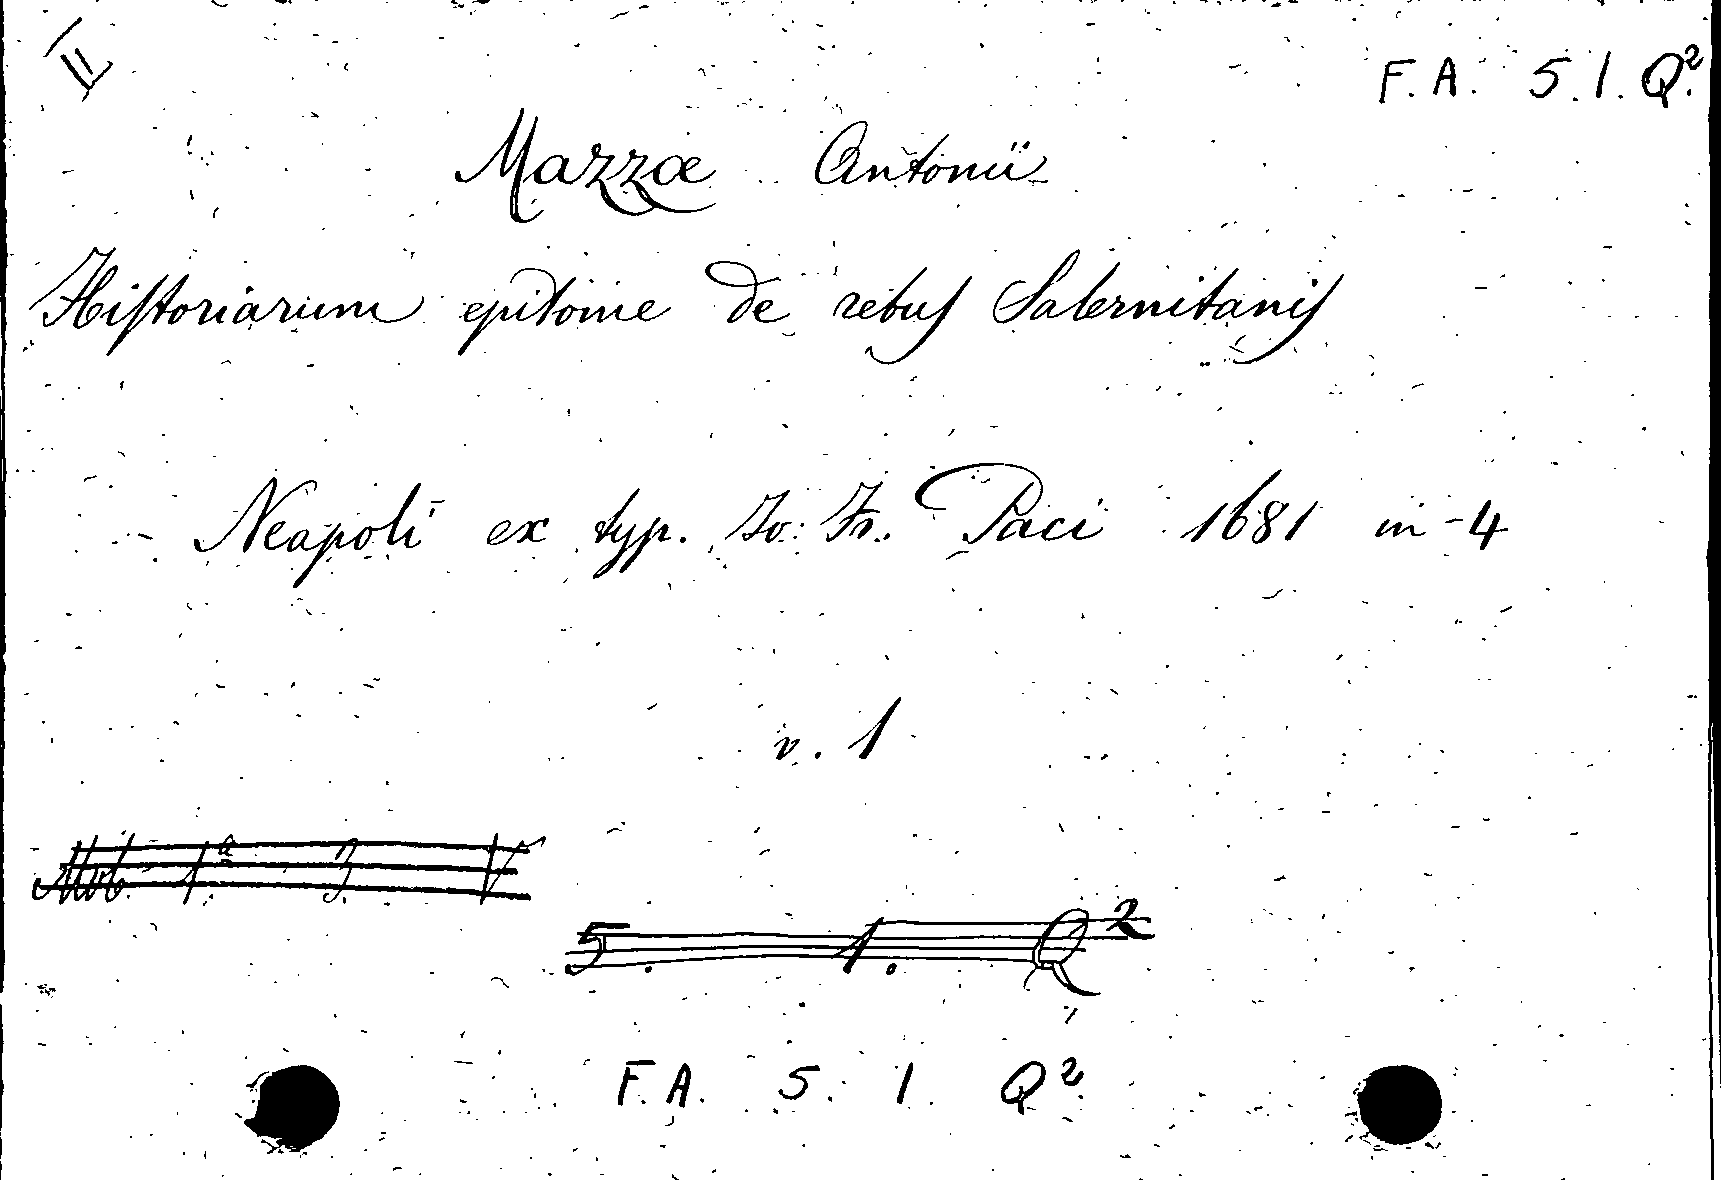 II
F. A. 5. 1. Q².
Mazzæ Antonii
Hiſtoriarum epitome de rebus Salernitanis
Neapoli ex typ. Jo: Fr. Paci 1681 in-4
v. 1
1ª 3. V
5. 1. Q²
F. A. 5. 1. Q²